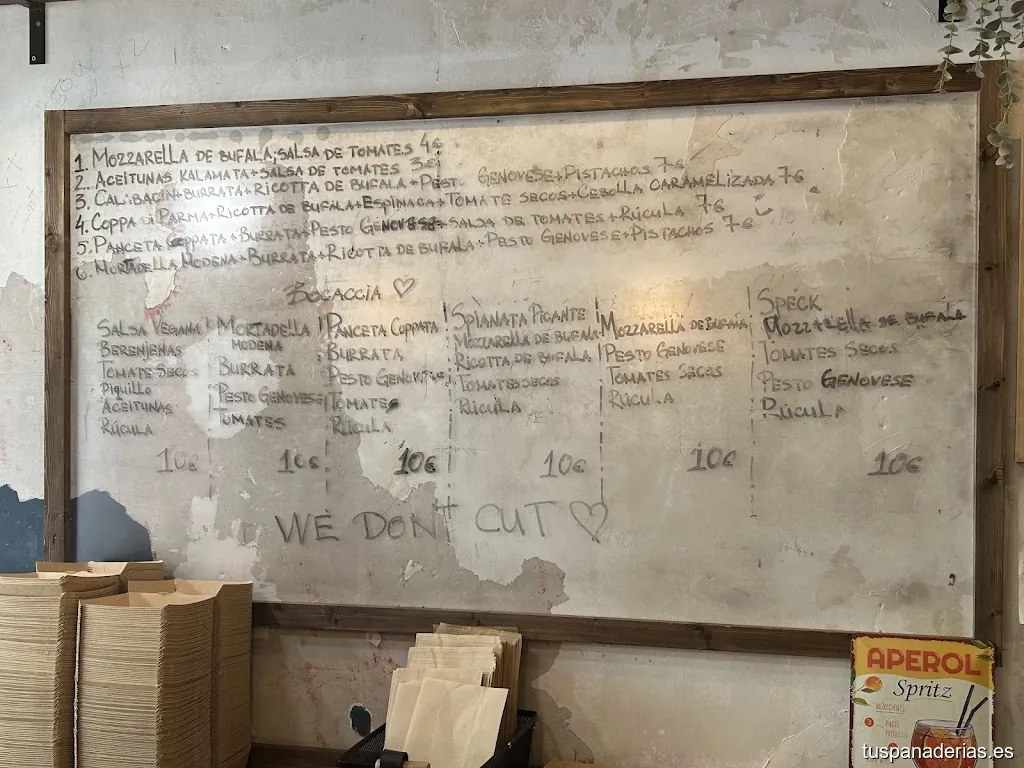 1. MOZZARELLA DE BUFALA, SALSA DE TOMATES 4€
2. ACEITUNAS KALAMATA+SALSA DE TOMATES 3€
3. CALABACIN+BURRATA+RICOTTA DE BUFALA+PEST. GENOVESE+PISTACHOS 7€
4. COPPA DI PARMA+RICOTTA DE BUFALA+ESPINACA+TOMATE SECOS+CEBOLLA CARAMELIZADA 7€
5. PANCETA COPPATA+BURRATA+PESTO GENOVESE+SALSA DE TOMATES+RÚCULA 7€
6. MORTADELLA MODENA+BURRATA+RICOTTA DE BUFALA+PESTO GENOVESE+PISTACHOS 7€
BOCACCIA ♡
SALSA VEGANA
BERENJENAS
TOMATE SECOS
PIQUILLO
ACEITUNAS
RÚCULA
10€
MORTADELLA
MODENA
BURRATA
PESTO GENOVESE
TOMATES
10€
PANCETA COPPATA
BURRATA
PESTO GENOVESE
TOMATES
RÚCULA
10€
SPIANATA PICANTE
MOZZARELLA DE BUFALA
RICOTTA DE BUFALA
TOMATES SECOS
RÚCULA
10€
MOZZARELLA DE BUFALA
PESTO GENOVESE
TOMATES SECOS
RÚCULA
10€
SPECK
MOZZARELLA DE BUFALA
TOMATES SECOS
PESTO GENOVESE
RÚCULA
10€
WE DON'T CUT ♡
APEROL
Spritz
INGREDIENTS
3
PARTS
PROSECCO
tuspanaderias.es